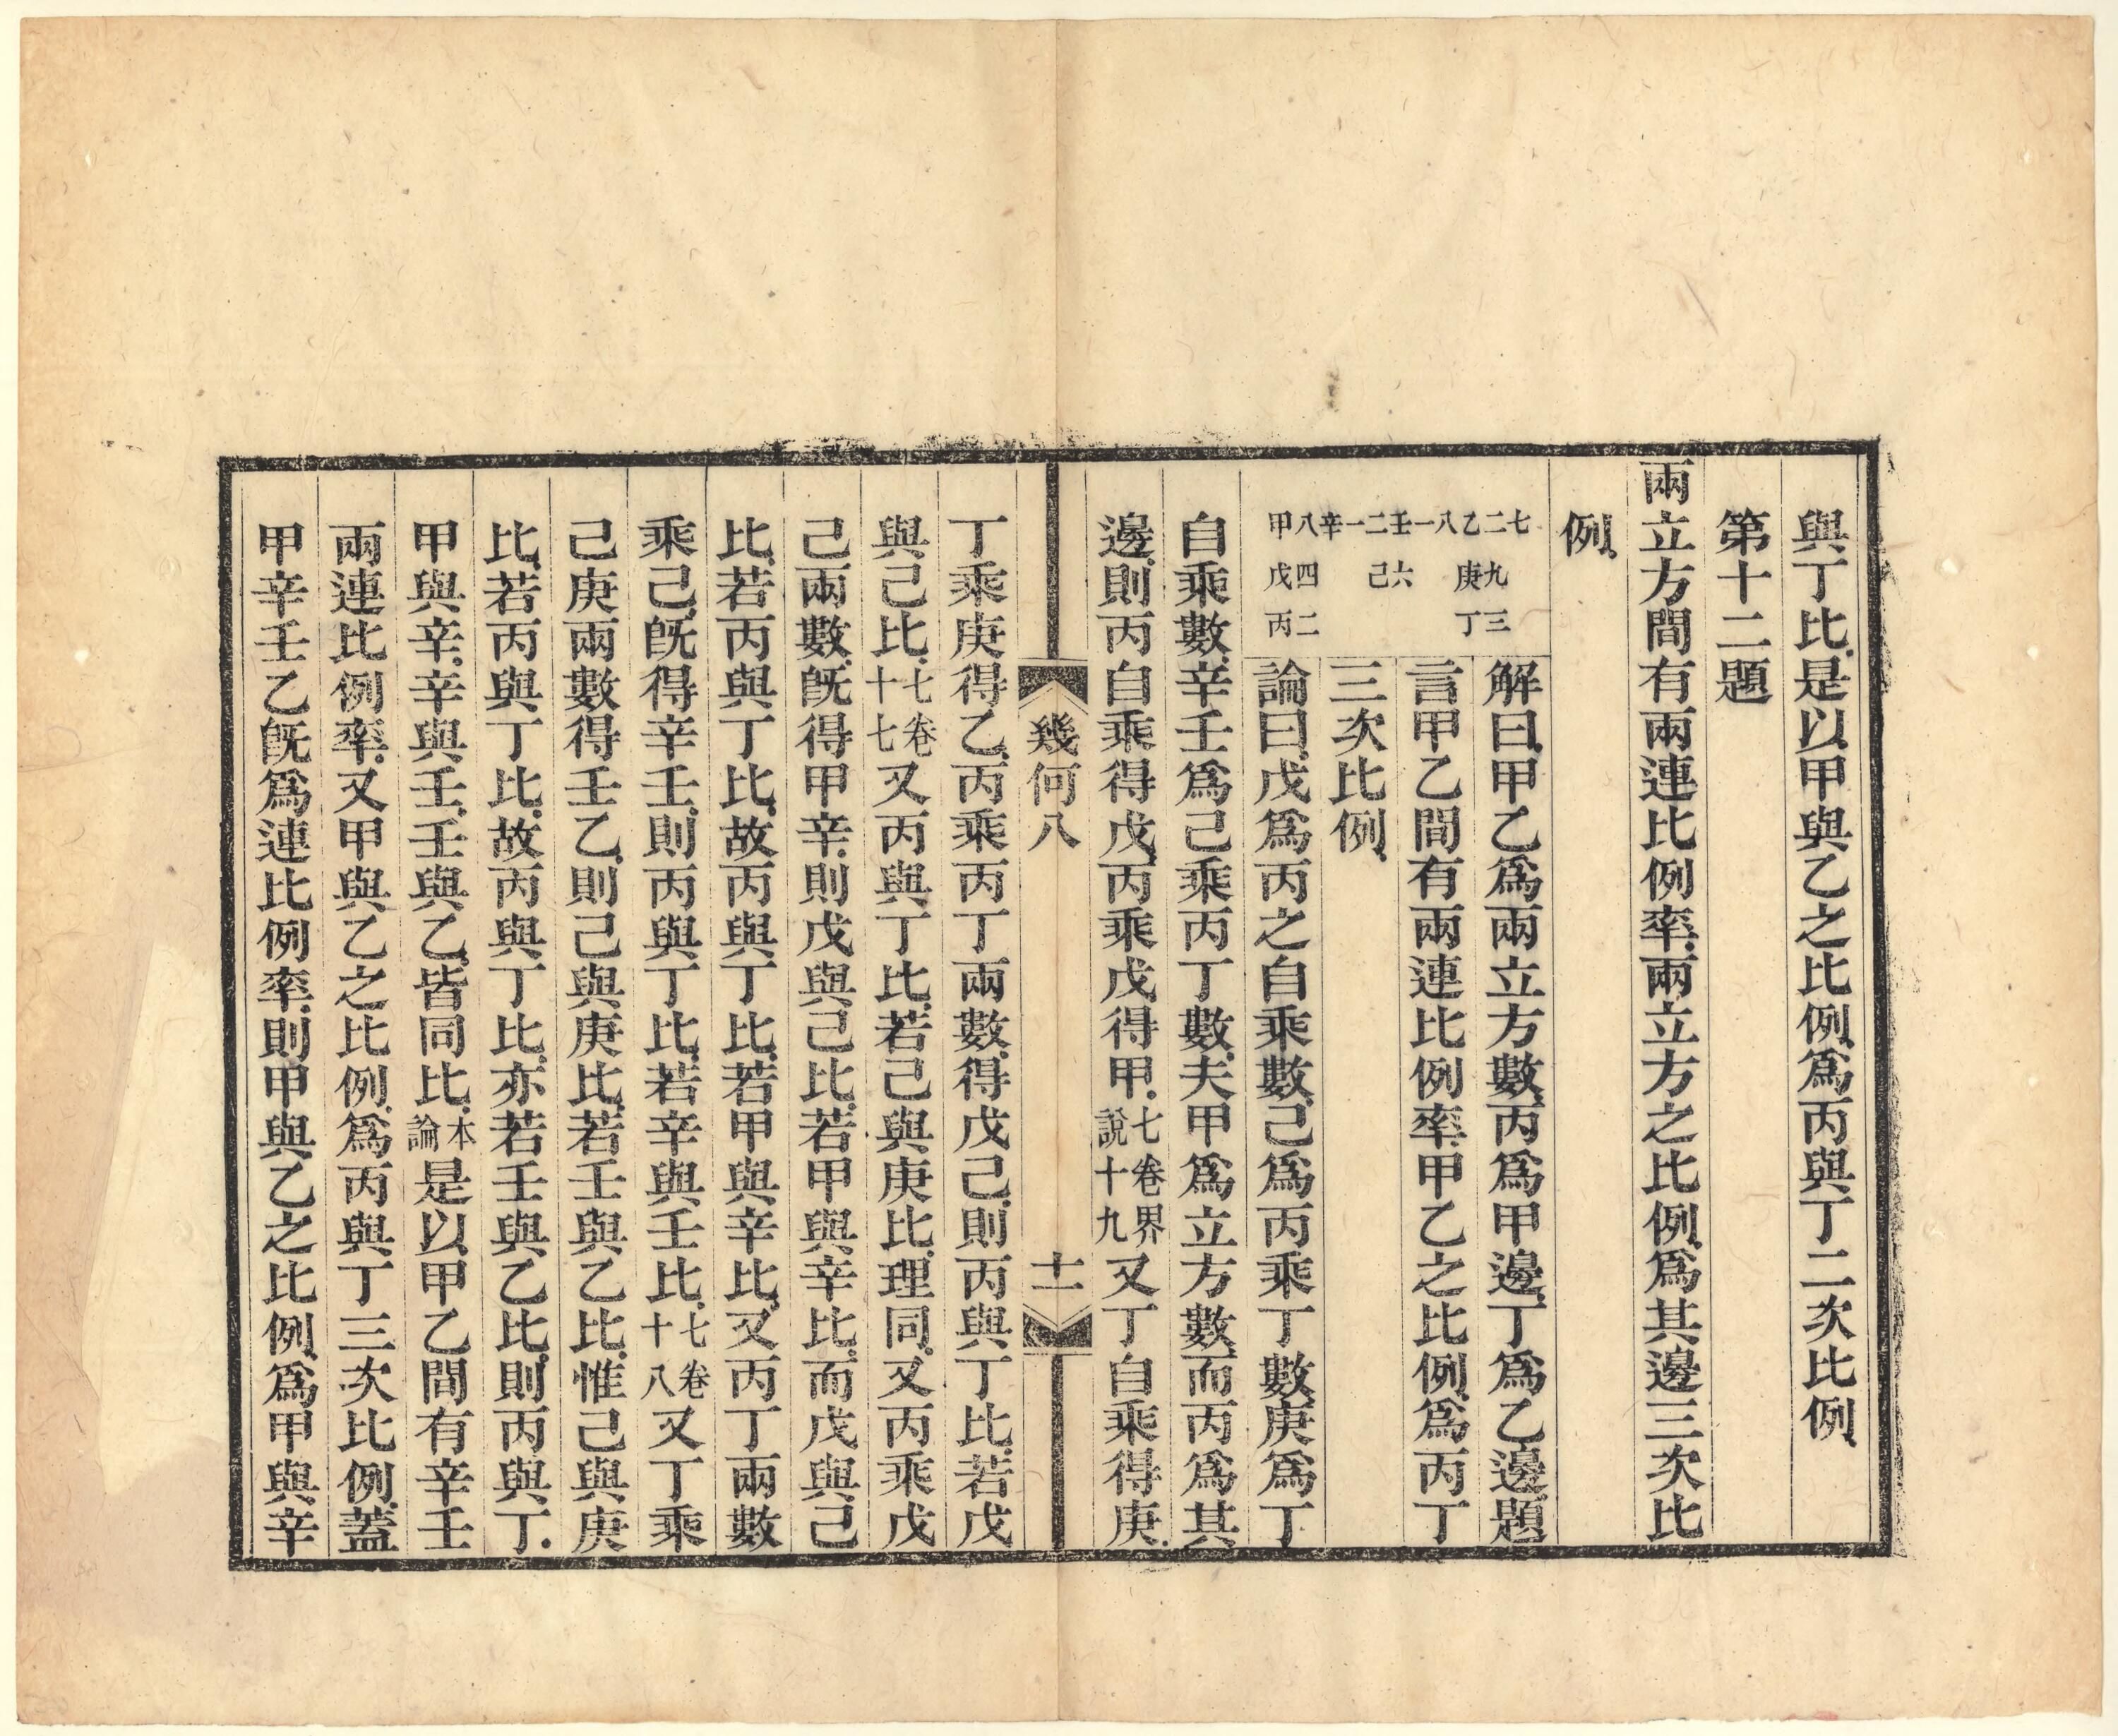 與丁比是以甲與乙之比例爲丙與丁二次比例
第十二題
兩立方間有兩連比例率兩立方之比例爲其邊三次比
例
甲八辛一二壬一八乙二七
戊四己六庚九
丙二丁三
解曰甲乙爲兩立方數丙爲甲邊丁爲乙邊題
言甲乙間有兩連比例率甲乙之比例爲丙丁
三次比例
論曰戊爲丙之自乘數己爲丙乘丁數庚爲丁
自乘數辛壬爲己乘丙丁數夫甲爲立方數而丙爲其
邊則丙自乘得戊丙乘戊得甲七卷界說十九又丁自乘得庚
幾何八
十一
丁乘庚得乙丙乘丙丁兩數得戊己則丙與丁比若戊
與己比七卷十七又丙與丁比若己與庚比理同又丙乘戊
己兩數旣得甲辛則戊與己比若甲與辛比而戊與己
比若丙與丁比故丙與丁比若甲與辛比又丙丁兩數
乘己旣得辛壬則丙與丁比若辛與壬比七卷十八又丁乘
己庚兩數得壬乙則己與庚比若壬與乙比惟己與庚
比若丙與丁比故丙與丁比亦若壬與乙比則丙與丁
甲與辛辛與壬壬與乙皆同比本論是以甲乙間有辛壬
兩連比例率又甲與乙之比例爲丙與丁三次比例蓋
甲辛壬乙旣爲連比例率則甲與乙之比例爲甲與辛